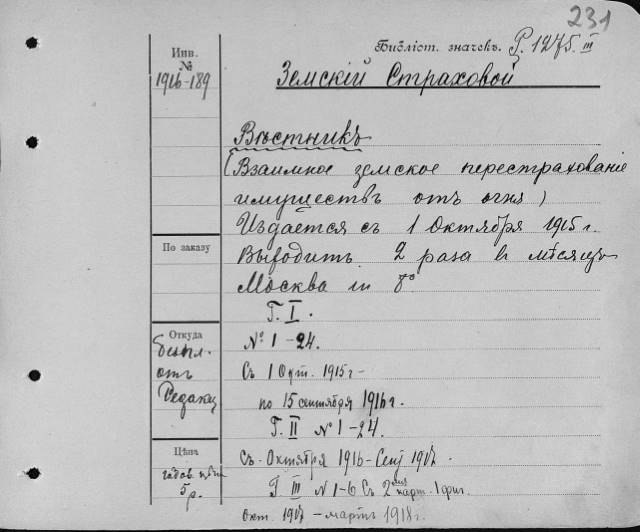 231
Библіот. значекъ. P. 1275. III
Инв.
№
1916-189
Земскій Страховой
Вѣстникъ
(Взаимное земское перестрахованіе
имуществъ отъ огня)
Издается съ 1 Октября 1915 г.
По заказу
Выходитъ 2 раза въ мѣсяцъ
Москва in 8°
Г. I.
Откуда
безпл.
отъ
Редакц
№ 1-24.
Съ 1 Окт. 1915 г-
по 15 сентября 1916 г.
Г. II № 1-24.
Цѣна
5 р.
Съ Октября 1916-Сент 1917.
Г. III N 1-6 Съ 2мя карт. 1 фиг.
Окт. 1917 - мартъ 1918 г.